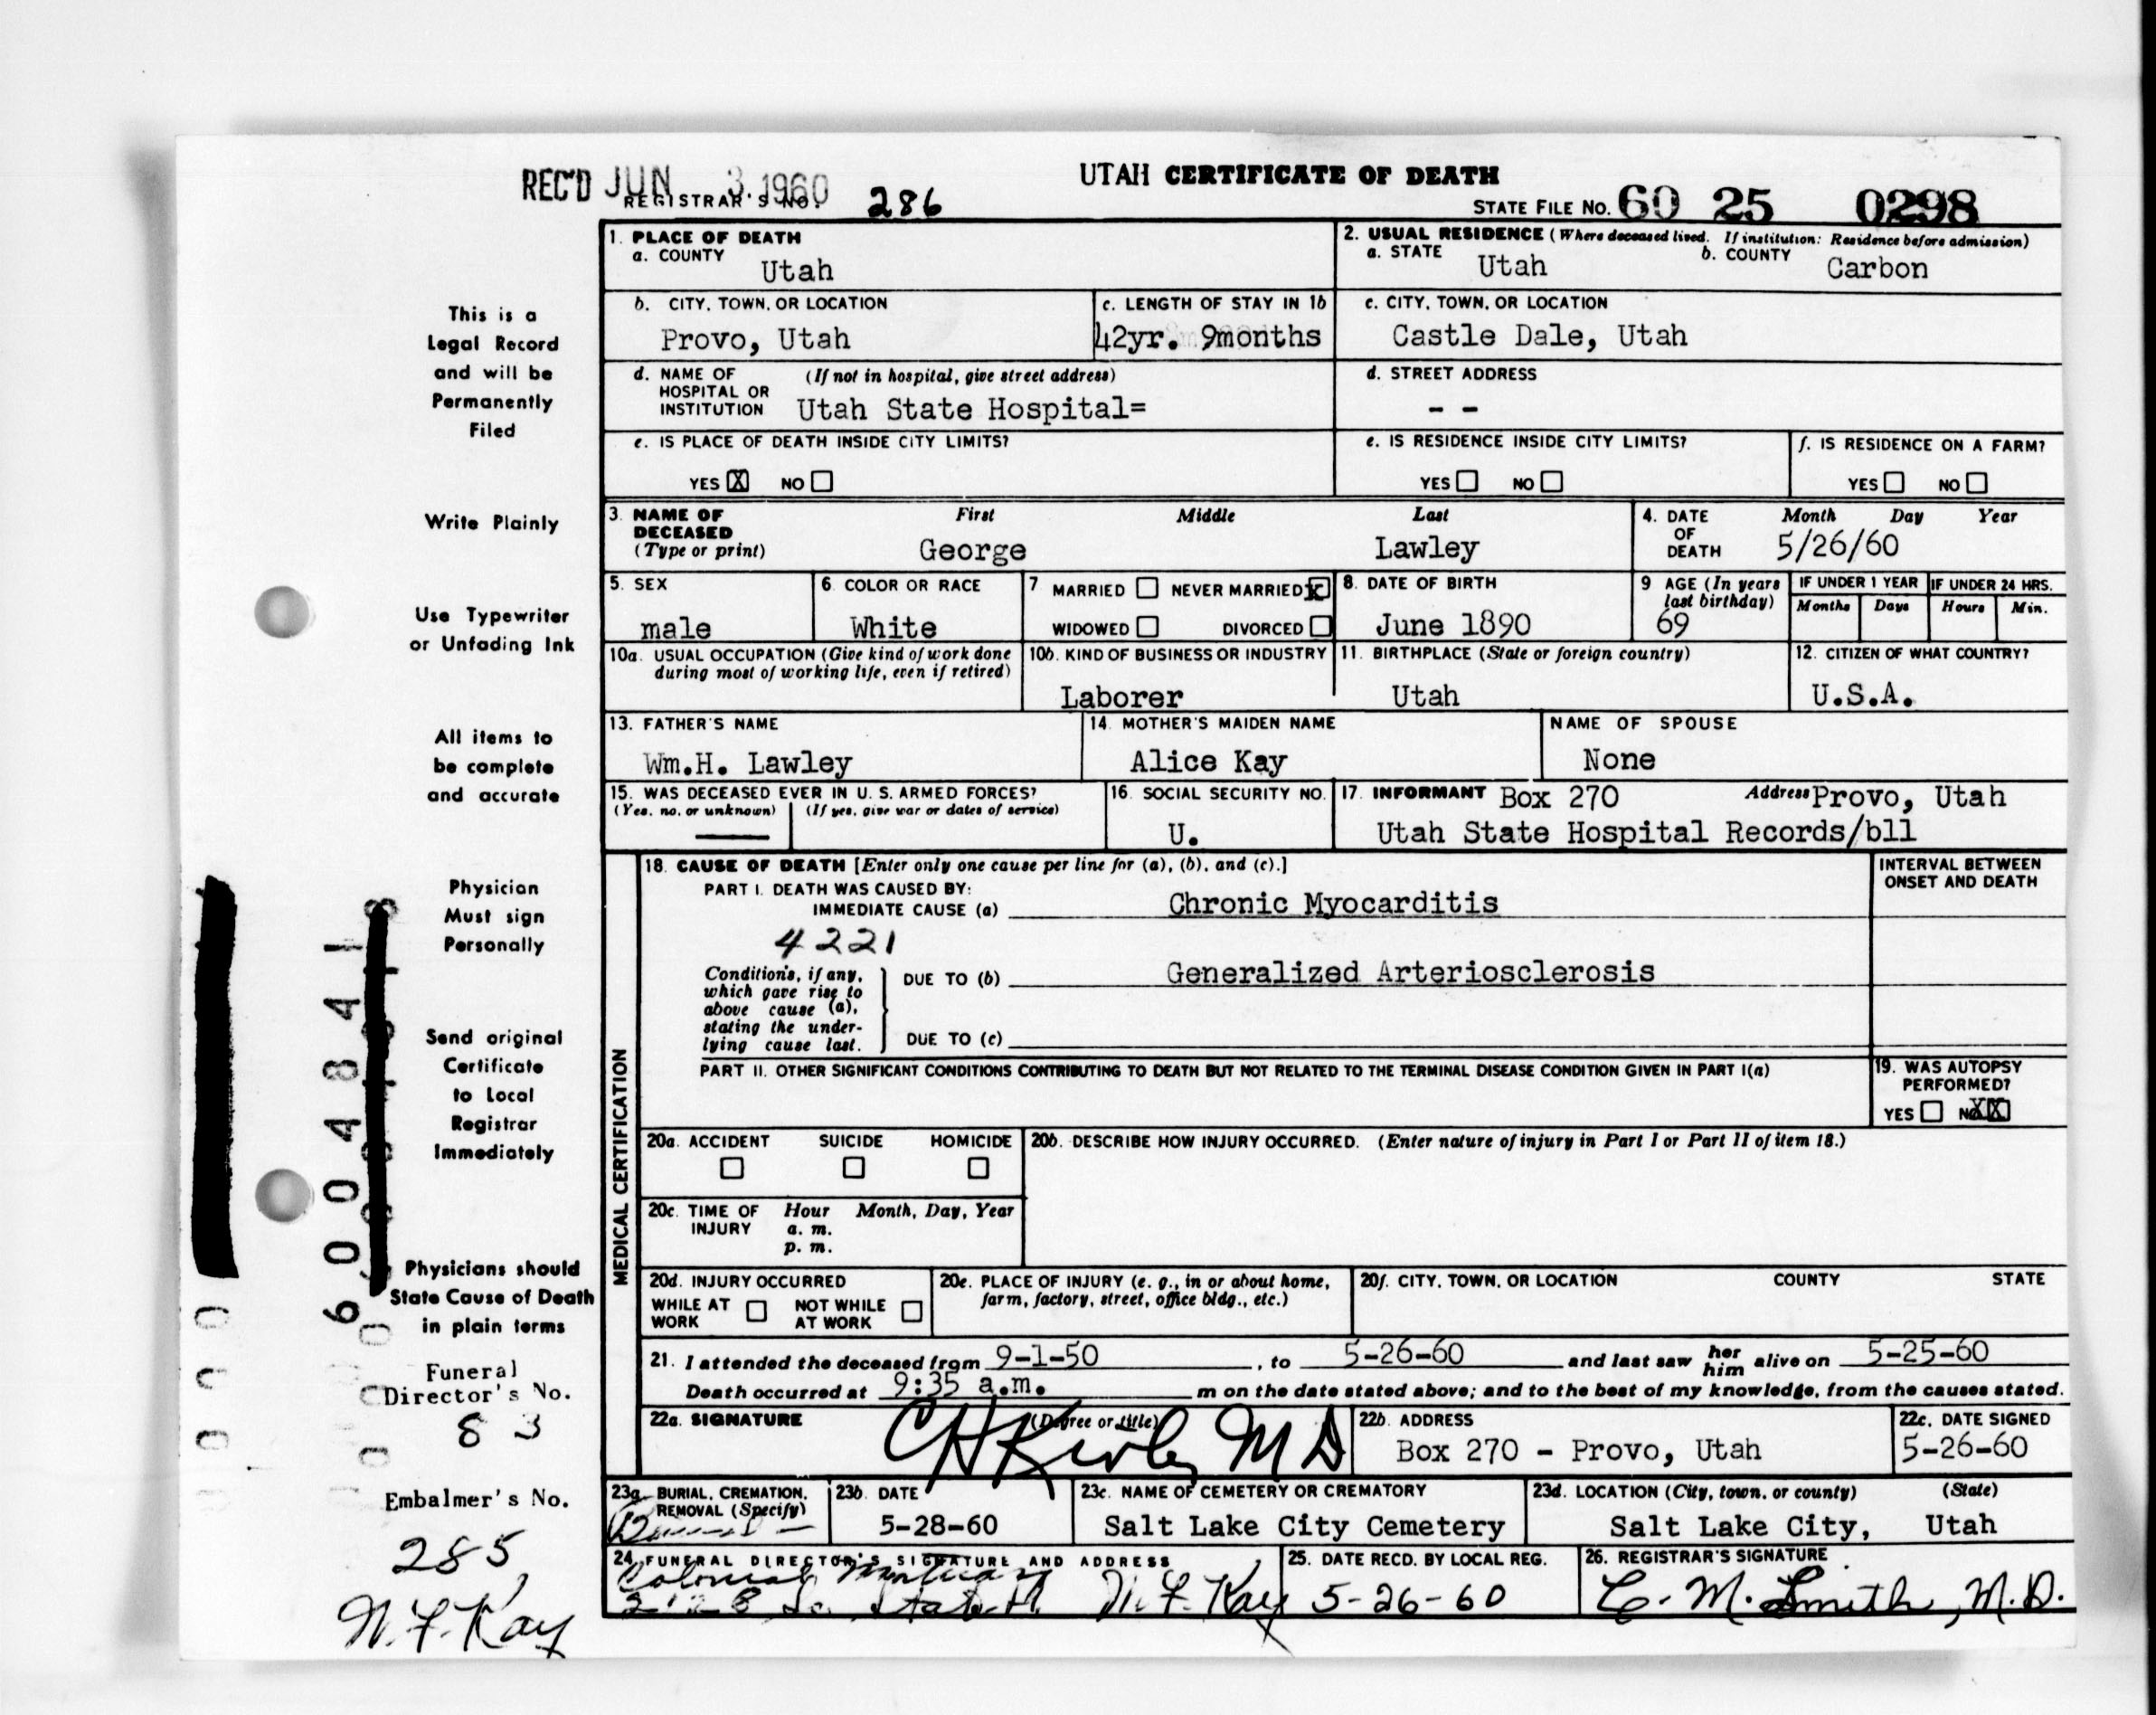 REC'D JUN 3. 1960
UTAH CERTIFICATE OF DEATH
REGISTRAR'S NO. 286
STATE FILE NO. 60 25 0298
1. PLACE OF DEATH
a. COUNTY
Utah
2. USUAL RESIDENCE (Where deceased lived. If institution: Residence before admission)
a. STATE Utah b. COUNTY Carbon
b. CITY, TOWN, OR LOCATION
Provo, Utah
c. LENGTH OF STAY IN 1b
42yr. 9months
c. CITY, TOWN, OR LOCATION
Castle Dale, Utah
d. NAME OF HOSPITAL OR INSTITUTION (If not in hospital, give street address)
Utah State Hospital=
d. STREET ADDRESS
- -
e. IS PLACE OF DEATH INSIDE CITY LIMITS?
YES X NO
e. IS RESIDENCE INSIDE CITY LIMITS?
YES NO
f. IS RESIDENCE ON A FARM?
YES NO
3. NAME OF DECEASED (Type or print)
First Middle Last
George Lawley
4. DATE OF DEATH Month Day Year
5/26/60
5. SEX
male
6. COLOR OR RACE
White
7 MARRIED NEVER MARRIED X
WIDOWED DIVORCED
8. DATE OF BIRTH
June 1890
9 AGE (In years last birthday)
69
IF UNDER 1 YEAR
Months Days
IF UNDER 24 HRS.
Hours Min.
10a. USUAL OCCUPATION (Give kind of work done during most of working life, even if retired)
10b. KIND OF BUSINESS OR INDUSTRY
Laborer
11. BIRTHPLACE (State or foreign country)
Utah
12. CITIZEN OF WHAT COUNTRY?
U.S.A.
13. FATHER'S NAME
Wm.H. Lawley
14. MOTHER'S MAIDEN NAME
Alice Kay
NAME OF SPOUSE
None
15. WAS DECEASED EVER IN U. S. ARMED FORCES?
(Yes, no, or unknown) (If yes, give war or dates of service)
16. SOCIAL SECURITY NO.
U.
17. INFORMANT Box 270 Address Provo, Utah
Utah State Hospital Records/bll
MEDICAL CERTIFICATION
18. CAUSE OF DEATH [Enter only one cause per line for (a), (b), and (c).]
INTERVAL BETWEEN ONSET AND DEATH
PART I. DEATH WAS CAUSED BY:
IMMEDIATE CAUSE (a) Chronic Myocarditis
4221
Conditions, if any, which gave rise to above cause (a), stating the underlying cause last.
DUE TO (b) Generalized Arteriosclerosis
DUE TO (c)
PART II. OTHER SIGNIFICANT CONDITIONS CONTRIBUTING TO DEATH BUT NOT RELATED TO THE TERMINAL DISEASE CONDITION GIVEN IN PART I(a)
19. WAS AUTOPSY PERFORMED?
YES NO XX
20a. ACCIDENT SUICIDE HOMICIDE
20b. DESCRIBE HOW INJURY OCCURRED. (Enter nature of injury in Part I or Part II of item 18.)
20c. TIME OF INJURY Hour Month, Day, Year
a. m.
p. m.
20d. INJURY OCCURRED
WHILE AT WORK NOT WHILE AT WORK
20e. PLACE OF INJURY (e. g., in or about home, farm, factory, street, office bldg., etc.)
20f. CITY, TOWN, OR LOCATION COUNTY STATE
21. I attended the deceased from 9-1-50, to 5-26-60 and last saw her him alive on 5-25-60
Death occurred at 9:35 a.m. m on the date stated above; and to the best of my knowledge, from the causes stated.
22a. SIGNATURE (Degree or title)
M D
22b. ADDRESS
Box 270 - Provo, Utah
22c. DATE SIGNED
5-26-60
23a. BURIAL, CREMATION, REMOVAL (Specify)
Burial
23b. DATE
5-28-60
23c. NAME OF CEMETERY OR CREMATORY
Salt Lake City Cemetery
23d. LOCATION (City, town, or county) (State)
Salt Lake City, Utah
24. FUNERAL DIRECTOR'S SIGNATURE AND ADDRESS
Colonial Mortuary
2128 So. State St. N. F. Kay
25. DATE RECD. BY LOCAL REG.
5-26-60
26. REGISTRAR'S SIGNATURE
C. M. Smith, M.D.
This is a
Legal Record
and will be
Permanently
Filed
Write Plainly
Use Typewriter
or Unfading Ink
All items to
be complete
and accurate
Physician
Must sign
Personally
Send original
Certificate
to Local
Registrar
Immediately
Physicians should
State Cause of Death
in plain terms
Funeral
Director's No.
83
Embalmer's No.
285
N. F. Kay
6004841